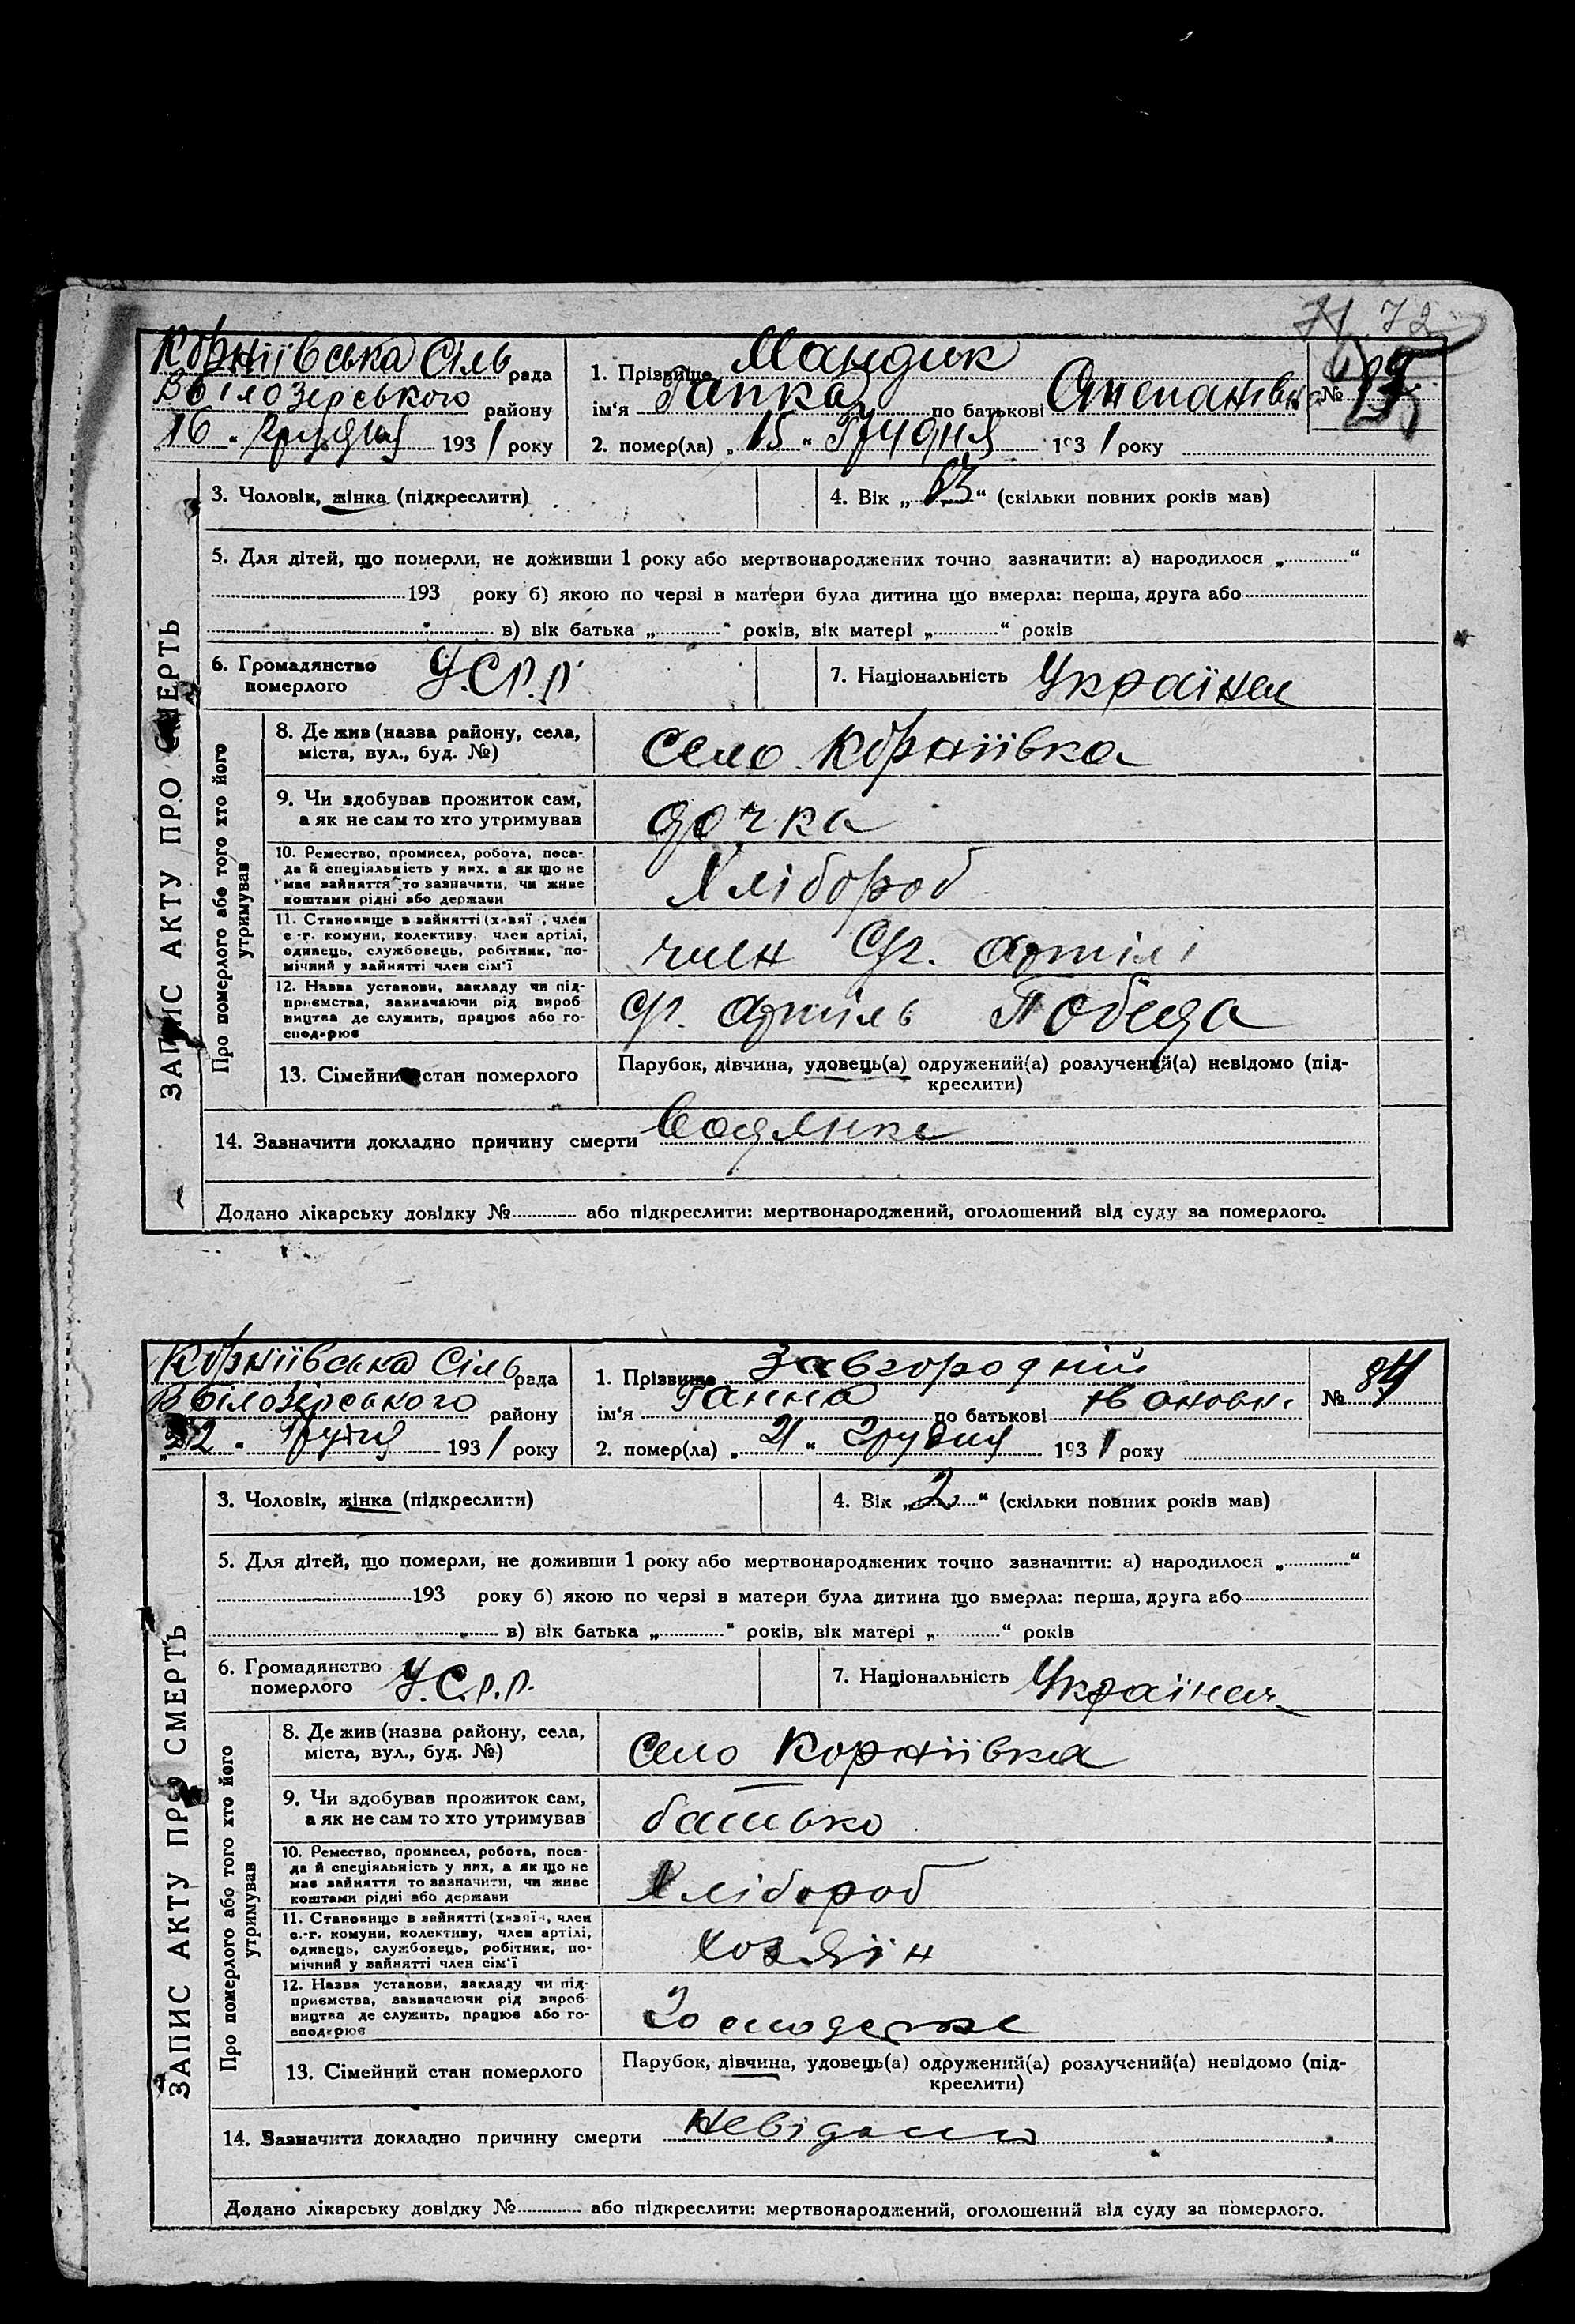 72
Корніівська Сіль рада
В Білозерського району
„16“ Грудня 1931 року
1. Прізвище Мандик
ім'я Гапка по батькові Степанівна
№
2. помер(ла) „15“ Грудня 1931 року
3. Чоловік, жінка (підкреслити)
4. Вік „63“ (скільки повних років мав)
5. Для дітей, що померли, не доживши 1 року або мертвонароджених точно зазначити: а) народилося „ “
193 року б) якою по черзі в матери була дитина що вмерла: перша, друга або
в) вік батька „ “ років, вік матері „ “ років
6. Громадянство померлого У.С.Р.Р.
7. Національність Українец
ЗАПИС АКТУ ПРО СМЕРТЬ
Про померлого або того хто його утримував
8. Де жив (назва району, села,
міста, вул., буд. №)
село Корніівка
9. Чи здобував прожиток сам,
а як не сам то хто утримував
дочка
10. Ремество, промисел, робота, поса-
да й спеціяльність у них, а як що не
має зайняття то зазначити, чи живе
коштами рідні або держави
Хлібороб
11. Становище в зайнятті (хазяїн, член
с.-г. комуни, колективу, член артілі,
одинець, службовець, робітник, по-
мічний у зайнятті член сім'ї
член Сг. артілі
12. Назва установи, закладу чи під-
приємства, зазначаючи рід вироб
ництва де служить, працює або го-
сподарює
Сг. артіль Побєда
13. Сімейний стан померлого
Парубок, дівчина, удовець(а) одружений(а) розлучений(а) невідомо (під-
креслити)
14. Зазначити докладно причину смерти Водянка
Додано лікарську довідку № або підкреслити: мертвонароджений, оголошений від суду за померлого.
Корніівська Сіль рада
В Білозерського району
„22“ Грудня 1931 року
1. Прізвище Завгородній
ім'я Ганна по батькові Івановн.
№ 84
2. помер(ла) „21“ Грудня 1931 року
3. Чоловік, жінка (підкреслити)
4. Вік „2“ (скільки повних років мав)
5. Для дітей, що померли, не доживши 1 року або мертвонароджених точно зазначити: а) народилося „ “
193 року б) якою по черзі в матери була дитина що вмерла: перша, друга або
в) вік батька „ “ років, вік матері „ “ років
6. Громадянство померлого У.С.Р.Р.
7. Національність Українец
ЗАПИС АКТУ ПРО СМЕРТЬ
Про померлого або того хто його утримував
8. Де жив (назва району, села,
міста, вул., буд. №)
село Корніівка
9. Чи здобував прожиток сам,
а як не сам то хто утримував
батько
10. Ремество, промисел, робота, поса-
да й спеціяльність у них, а як що не
має зайняття то зазначити, чи живе
коштами рідні або держави
Хлібороб
11. Становище в зайнятті (хазяїн, член
с.-г. комуни, колективу, член артілі,
одинець, службовець, робітник, по-
мічний у зайнятті член сім'ї
хозяїн
12. Назва установи, закладу чи під-
приємства, зазначаючи рід вироб
ництва де служить, працює або го-
сподарює
13. Сімейний стан померлого
Парубок, дівчина, удовець(а) одружений(а) розлучений(а) невідомо (під-
креслити)
14. Зазначити докладно причину смерти Невідомо
Додано лікарську довідку № або підкреслити: мертвонароджений, оголошений від суду за померлого.